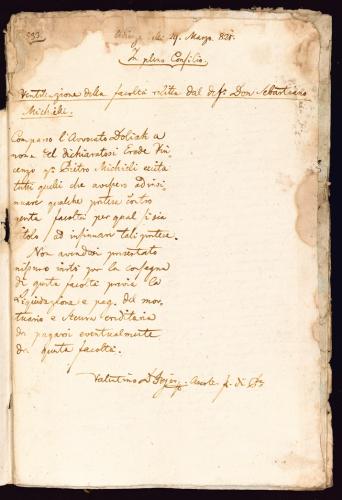 li 19. Marzo 828.
In pleno Consilio.
Ventilazione della facoltà relitta dal defto Don Sebastiano
Michieli.
Comparso l'Avvocato Doliak a
nome del dichiaratosi Erede Vin-
cenzo qm Pietro Michieli
tutti quelli che avessero ad insi-
nuare qualche pretesa contro
questa facoltà per qual si sia
titolo ad insinuare tali pretese.
Non avendosi presentato
nissuno insta per la consegna
di questa facoltà previa la
liquidazione e pag. del mor-
tuario e Steura ereditaria
da pagarsi eventualmente
da questa facoltà.
Valentino